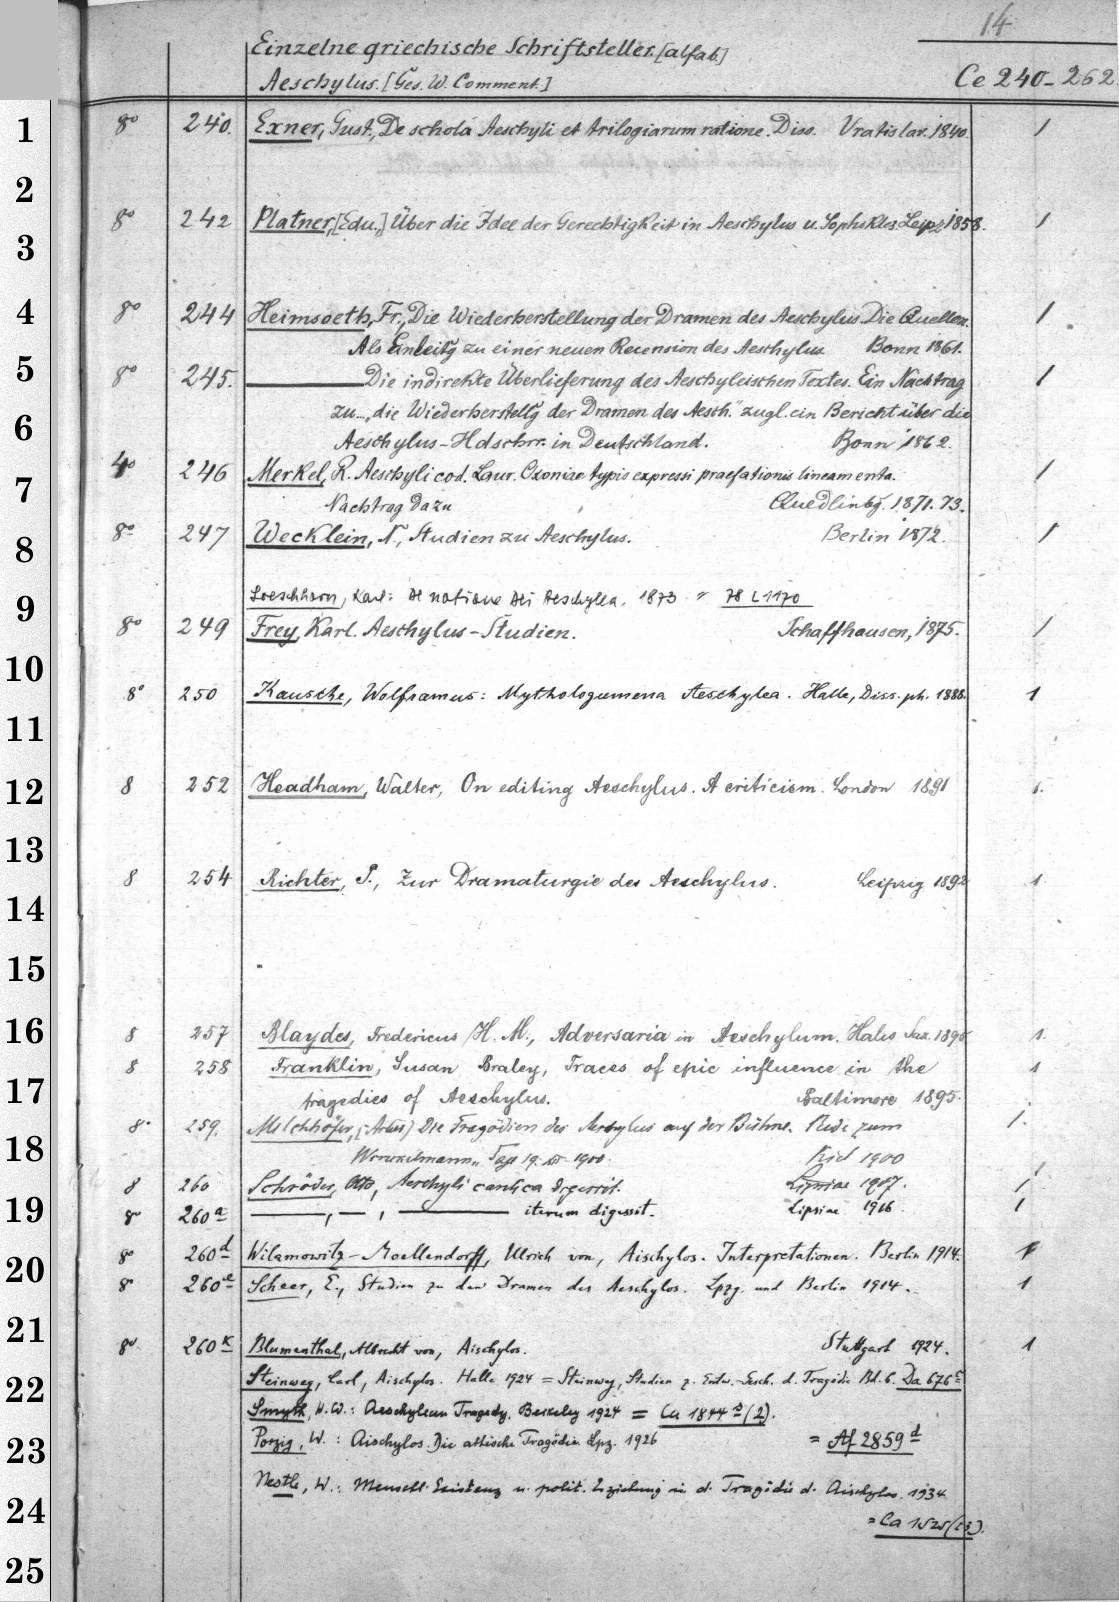 14
Einzelne griechische Schriftsteller. [alfab.]
Aeschylus. [Ges. W. Comment.]
Ce 240-262
1
8° 240. Exner, Gust., De schola Aeschyli et trilogiarum ratione. Diss. Vratislav. 1840. 1
2
8° 242 Platner, [Edu.,] Über die Idee der Gerechtigkeit in Aeschylus u. Sophokles. Leipz. 1858. 1
3
4
8° 244 Heimsoeth, Fr., Die Wiederherstellung der Dramen des Aeschylus. Die Quellen. 1
Als Einleitg zu einer neuen Recension des Aeschylus Bonn 1861.
5
8° 245. ——— Die indirekte Überlieferung des Aeschyleischen Textes. Ein Nachtrag 1
zu „die Wiederherstellg der Dramen des Aesch." zugl. ein Bericht über die
6
Aeschylus-Hdschrr. in Deutschland. Bonn 1862.
4° 246 Merkel, R. Aeschyli cod. Laur. Oxoniae typis expressi praefationis lineamenta. 1
7
Nachtrag dazu Quedlinbg. 1871. 73.
8° 247 Wecklein, N., Studien zu Aeschylus. Berlin 1872. 1
8
Loeschhorn, Karl: De notione Aeschylea. 1873 = 78 L 1170
9
8° 249 Frey, Karl. Aeschylus-Studien. Schaffhausen, 1875. 1
10
8° 250 Kausche, Wolframus: Mythologumena Aeschylea. Halle, Diss. ph. 1888. 1
11
8 252 Headham, Walter, On editing Aeschylus. A criticism. London 1891 1.
12
13
8 254 Richter, P., Zur Dramaturgie des Aeschylus. Leipzig 1892 1.
14
15
16
8 257 Blaydes, Fredericus H. M., Adversaria in Aeschylum. Halis Sax. 1895 1.
8 258 Franklin, Susan Braley, Traces of epic influence in the 1
17
tragedies of Aeschylus. Baltimore 1895.
8° 259. Milchhöfer, (Arth.) Die Tragödien des Aeschylus auf der Bühne. Rede zum 1.
18
Winckelmanns Tage 19. XII. 1900. Kiel 1900
8 260 Schröder, Otto, Aeschyli cantica digessit. Lipsiae 1907. 1
19
8° 260a ———, —, ——— iterum digessit. Lipsiae 1916 1
8° 260d Wilamowitz-Moellendorff, Ulrich von, Aischylos. Interpretationen. Berlin 1914. 1
20
8° 260e Scheer, E., Studien zu den Dramen des Aeschylos. Lpzg. und Berlin 1914. 1
21
8° 260k Blumenthal, Albrecht von, Aischylos. Stuttgart 1924. 1
22
Steinweg, Carl, Aischylos. Halle 1924 = Steinweg, Studien z. Entw.-Gesch. d. Tragödie Bd. 6. Da 676c
Smyth, H. W.: Aeschylean Tragedy. Berkeley 1924 = Ca 1844s (2).
23
Porzig, W.: Aischylos. Die attische Tragödie Lpz. 1926 = Af 2859d
Nestle, W.: Menschl. Existenz u. polit. Erziehung in d. Tragödie d. Aischylos. 1934
24
= Ca 1525 (23).
25